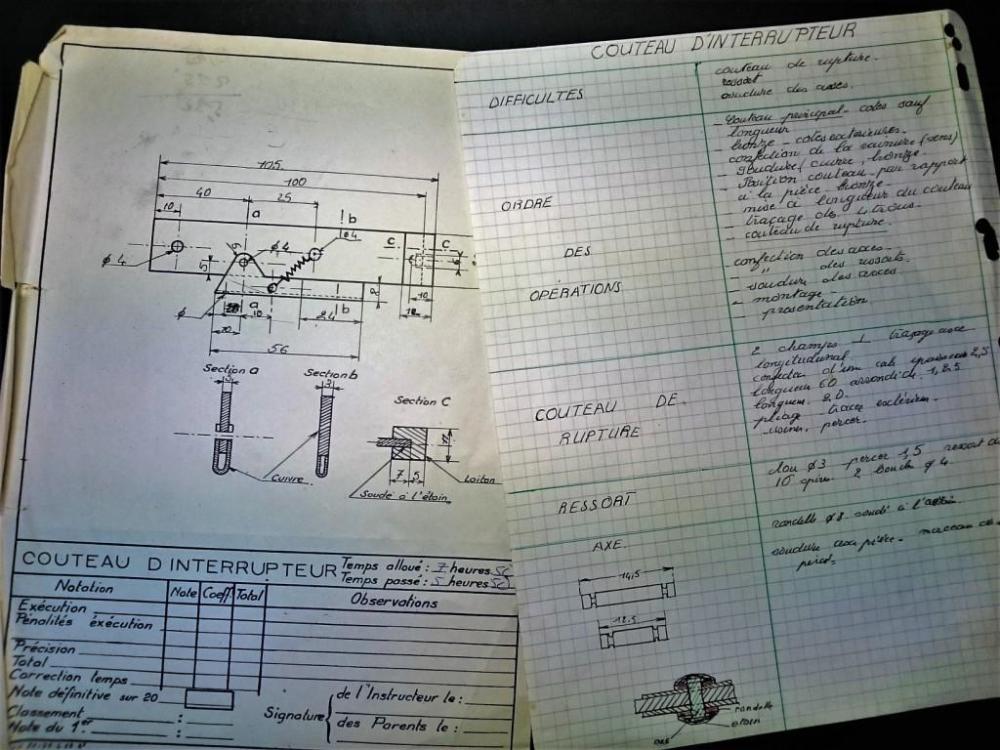 105
100
40
25
10
a
b
ϕ4
ϕ4
c
c
ϕ 4
5
ϕ
a
b
10
20
10
24
56
Section a
3
Section b
3
Section C
Cuivre
7
5
Laiton
Soudé à l'étain
COUTEAU D'INTERRUPTEUR
Temps alloué : 7 heures 50
Temps passé : 5 heures 50
Notation
Note
Coeff
Total
Observations
Exécution
Pénalités éxécution
Précision
Total
Correction temps
Note définitive sur 20
Classement :
Note du 1er :
Signature
de l'Instructeur le :
des Parents le :
COUTEAU D'INTERRUPTEUR
DIFFICULTES
couteau de rupture.
ressort
soudure des axes.
ORDRE
DES
OPÉRATIONS
- Couteau principal cotes sauf
longueur
- bronze - cotes extérieures.
- confection de la rainure (sens)
- soudure cuivre, bronze.
- Position couteau par rapport
à la pièce bronze.
- mise à longueur du couteau
- traçage des 4 trous.
- couteau de rupture.
- confection des axes.
- " des ressorts.
- soudure des axes.
- montage.
- présentation.
COUTEAU DE
RUPTURE
2 champs ⊥ traçage axe
longitudinal
longueur 60 arrondi de 1,25
pliage - tracer extérieur.
percer.
RESSORT
clou ϕ3 percer 1,5 ressort
10 spires. 2 boucle ϕ 4.
AXE.
rondelle ϕ8 soudé à l'étain
soudure axe pièce - morceau
14,5
12,5
rondelle
étain
axe